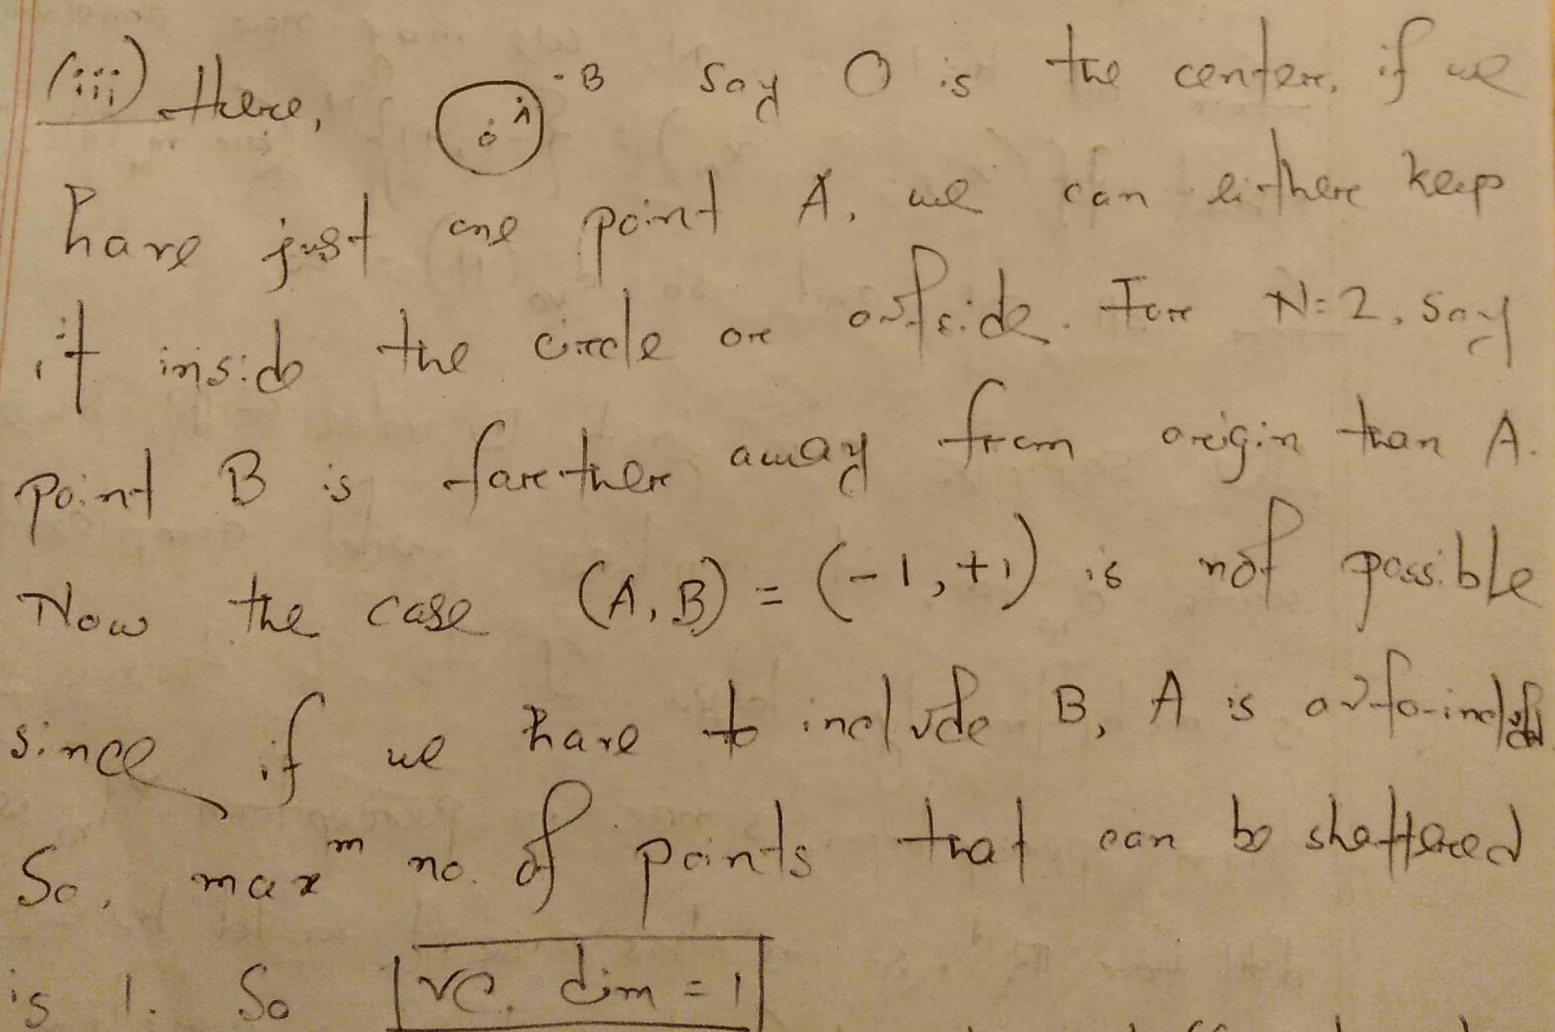 (iii) Here, O A .B Say O is the center, if we
have just one point A, we can either keep
it inside the circle or outside. For N=2, say
point B is farther away from origin than A.
Now the case (A, B) = (-1, +1) is not possible
since if we have to include B, A is auto-included
So, maxᵐ no. of points that can be shattered
is 1. So VC. dim = 1